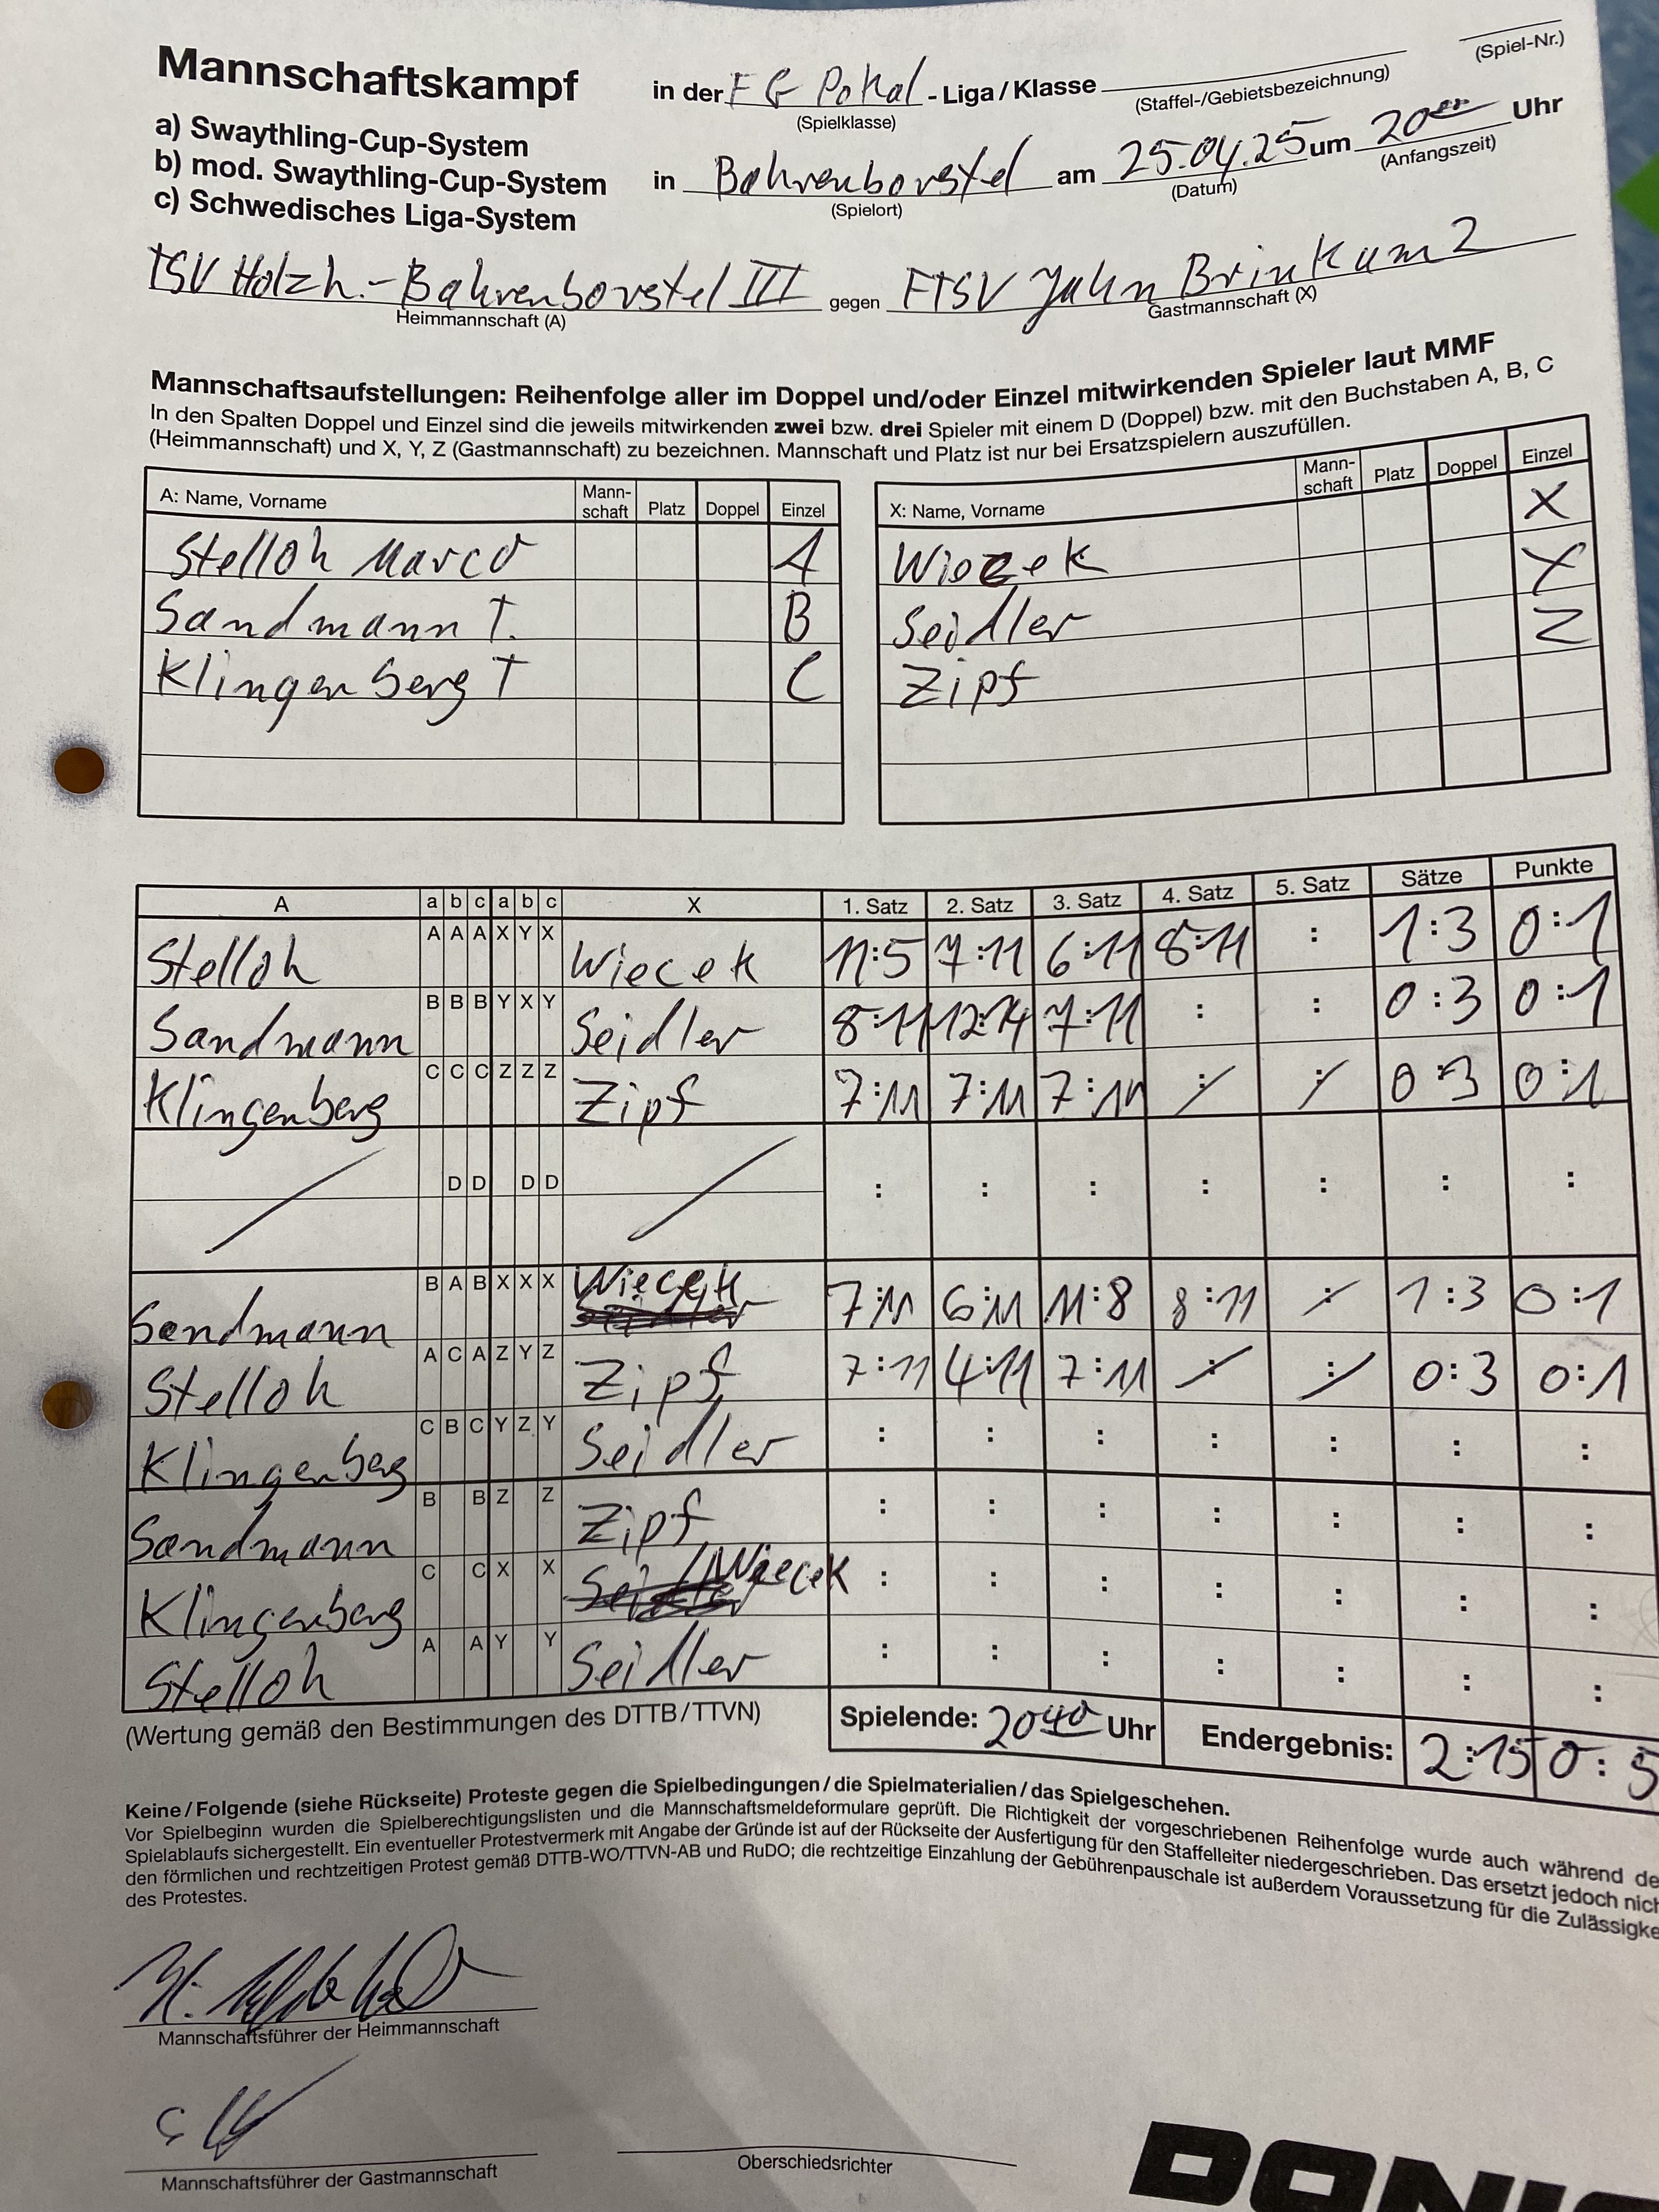 Mannschaftskampf
a) Swaythling-Cup-System
b) mod. Swaythling-Cup-System
c) Schwedisches Liga-System
in der FG Pokal - Liga / Klasse
(Spielklasse) (Staffel-/Gebietsbezeichnung) (Spiel-Nr.)
in Bahrenborstel am 25.04.25 um 20⁰⁰ Uhr
(Spielort) (Datum) (Anfangszeit)
TSV Holzh.-Bahrenborstel III gegen FTSV Jahn Brinkum 2
Heimmannschaft (A) Gastmannschaft (X)
Mannschaftsaufstellungen: Reihenfolge aller im Doppel und/oder Einzel mitwirkenden Spieler laut MMF
In den Spalten Doppel und Einzel sind die jeweils mitwirkenden zwei bzw. drei Spieler mit einem D (Doppel) bzw. mit den Buchstaben A, B, C
(Heimmannschaft) und X, Y, Z (Gastmannschaft) zu bezeichnen. Mannschaft und Platz ist nur bei Ersatzspielern auszufüllen.
A: Name, Vorname Mann-schaft Platz Doppel Einzel
Stelloh Marco A
Sandmann T. B
Klingenberg T C
X: Name, Vorname Mann-schaft Platz Doppel Einzel
X
Wiecek Y
Seidler Z
Zipf
A a b c a b c X 1. Satz 2. Satz 3. Satz 4. Satz 5. Satz Sätze Punkte
Stelloh A A A X Y X Wiecek 11:5 7:11 6:11 8:11 : 1:3 0:1
Sandmann B B B Y X Y Seidler 8:11 12:14 7:11 : : 0:3 0:1
Klingenberg C C C Z Z Z Zipf 7:11 7:11 7:11 : : 0:3 0:1
D D D D : : : : : : :
Sandmann B A B X X X Wiecek 7:11 6:11 11:8 8:11 : 1:3 0:1
Stelloh A C A Z Y Z Zipf 7:11 4:11 7:11 : : 0:3 0:1
Klingenberg C B C Y Z Y Seidler : : : : : : :
Sandmann B B Z Z Zipf : : : : : : :
Klingenberg C C X X Wiecek : : : : : : :
Stelloh A A Y Y Seidler : : : : : : :
(Wertung gemäß den Bestimmungen des DTTB/TTVN) Spielende: 20⁴⁰ Uhr Endergebnis: 2:15 0:5
Keine / Folgende (siehe Rückseite) Proteste gegen die Spielbedingungen / die Spielmaterialien / das Spielgeschehen.
Vor Spielbeginn wurden die Spielberechtigungslisten und die Mannschaftsmeldeformulare geprüft. Die Richtigkeit der vorgeschriebenen Reihenfolge wurde auch während de
Spielablaufs sichergestellt. Ein eventueller Protestvermerk mit Angabe der Gründe ist auf der Rückseite der Ausfertigung für den Staffelleiter niedergeschrieben. Das ersetzt jedoch nich
den förmlichen und rechtzeitigen Protest gemäß DTTB-WO/TTVN-AB und RuDO; die rechtzeitige Einzahlung der Gebührenpauschale ist außerdem Voraussetzung für die Zulässigke
des Protestes.
Mannschaftsführer der Heimmannschaft
Mannschaftsführer der Gastmannschaft
Oberschiedsrichter
DONIC